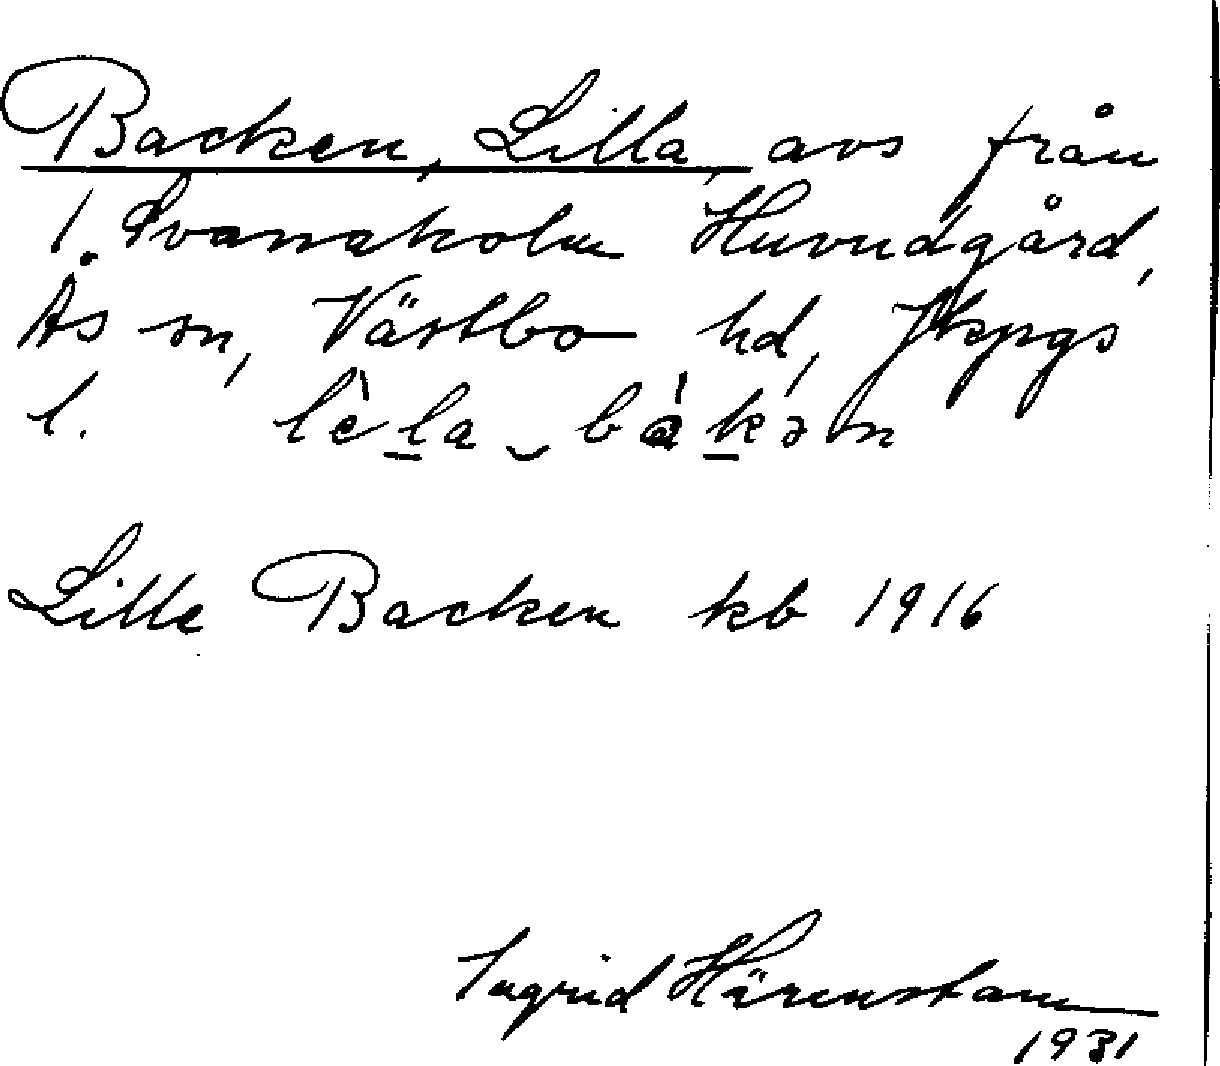 Backen, Lilla, avs från
1 Svansholm Huvudgård,
Ås sn, Västbo hd, Jkpgs
l. lè̀l̠a‿bák̠ən
Lille Backen kb 1916
Ingrid Härenstam
1931